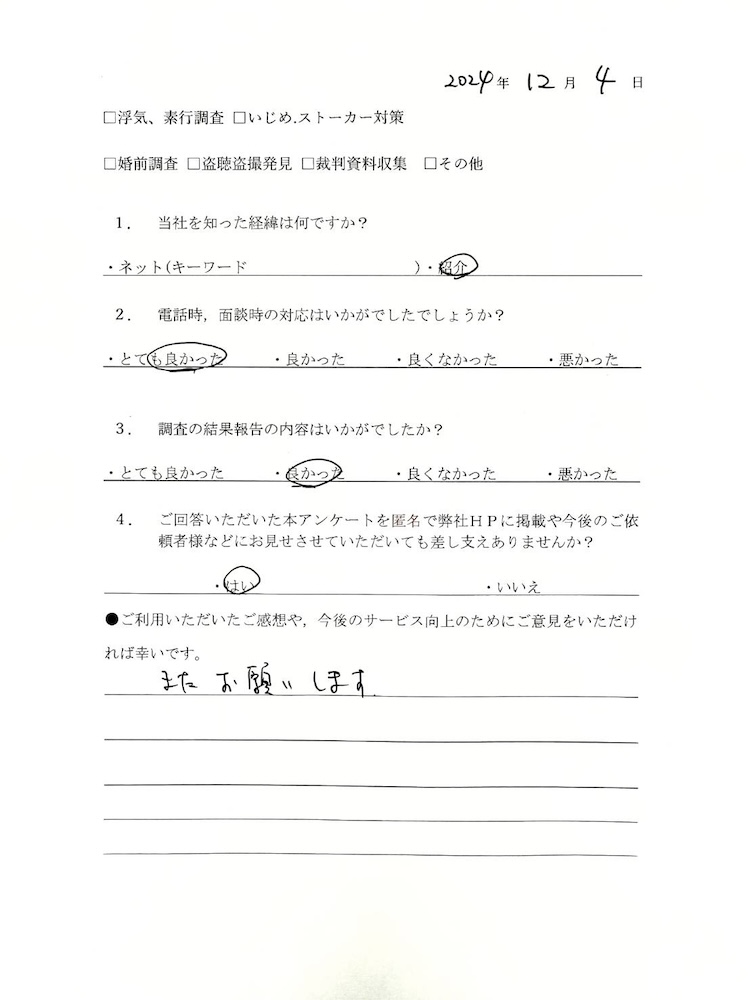 2024年 12月 4日
□浮気、素行調査 □いじめ.ストーカー対策
□婚前調査 □盗聴盗撮発見 □裁判資料収集 □その他
1. 当社を知った経緯は何ですか？
・ネット(キーワード )・紹介
2. 電話時,面談時の対応はいかがでしたでしょうか？
・とても良かった ・良かった ・良くなかった ・悪かった
3. 調査の結果報告の内容はいかがでしたか？
・とても良かった ・良かった ・良くなかった ・悪かった
4. ご回答いただいた本アンケートを匿名で弊社ＨＰに掲載や今後のご依
頼者様などにお見せさせていただいても差し支えありませんか？
・はい ・いいえ
●ご利用いただいたご感想や,今後のサービス向上のためにご意見をいただけ
れば幸いです。
また お願いします